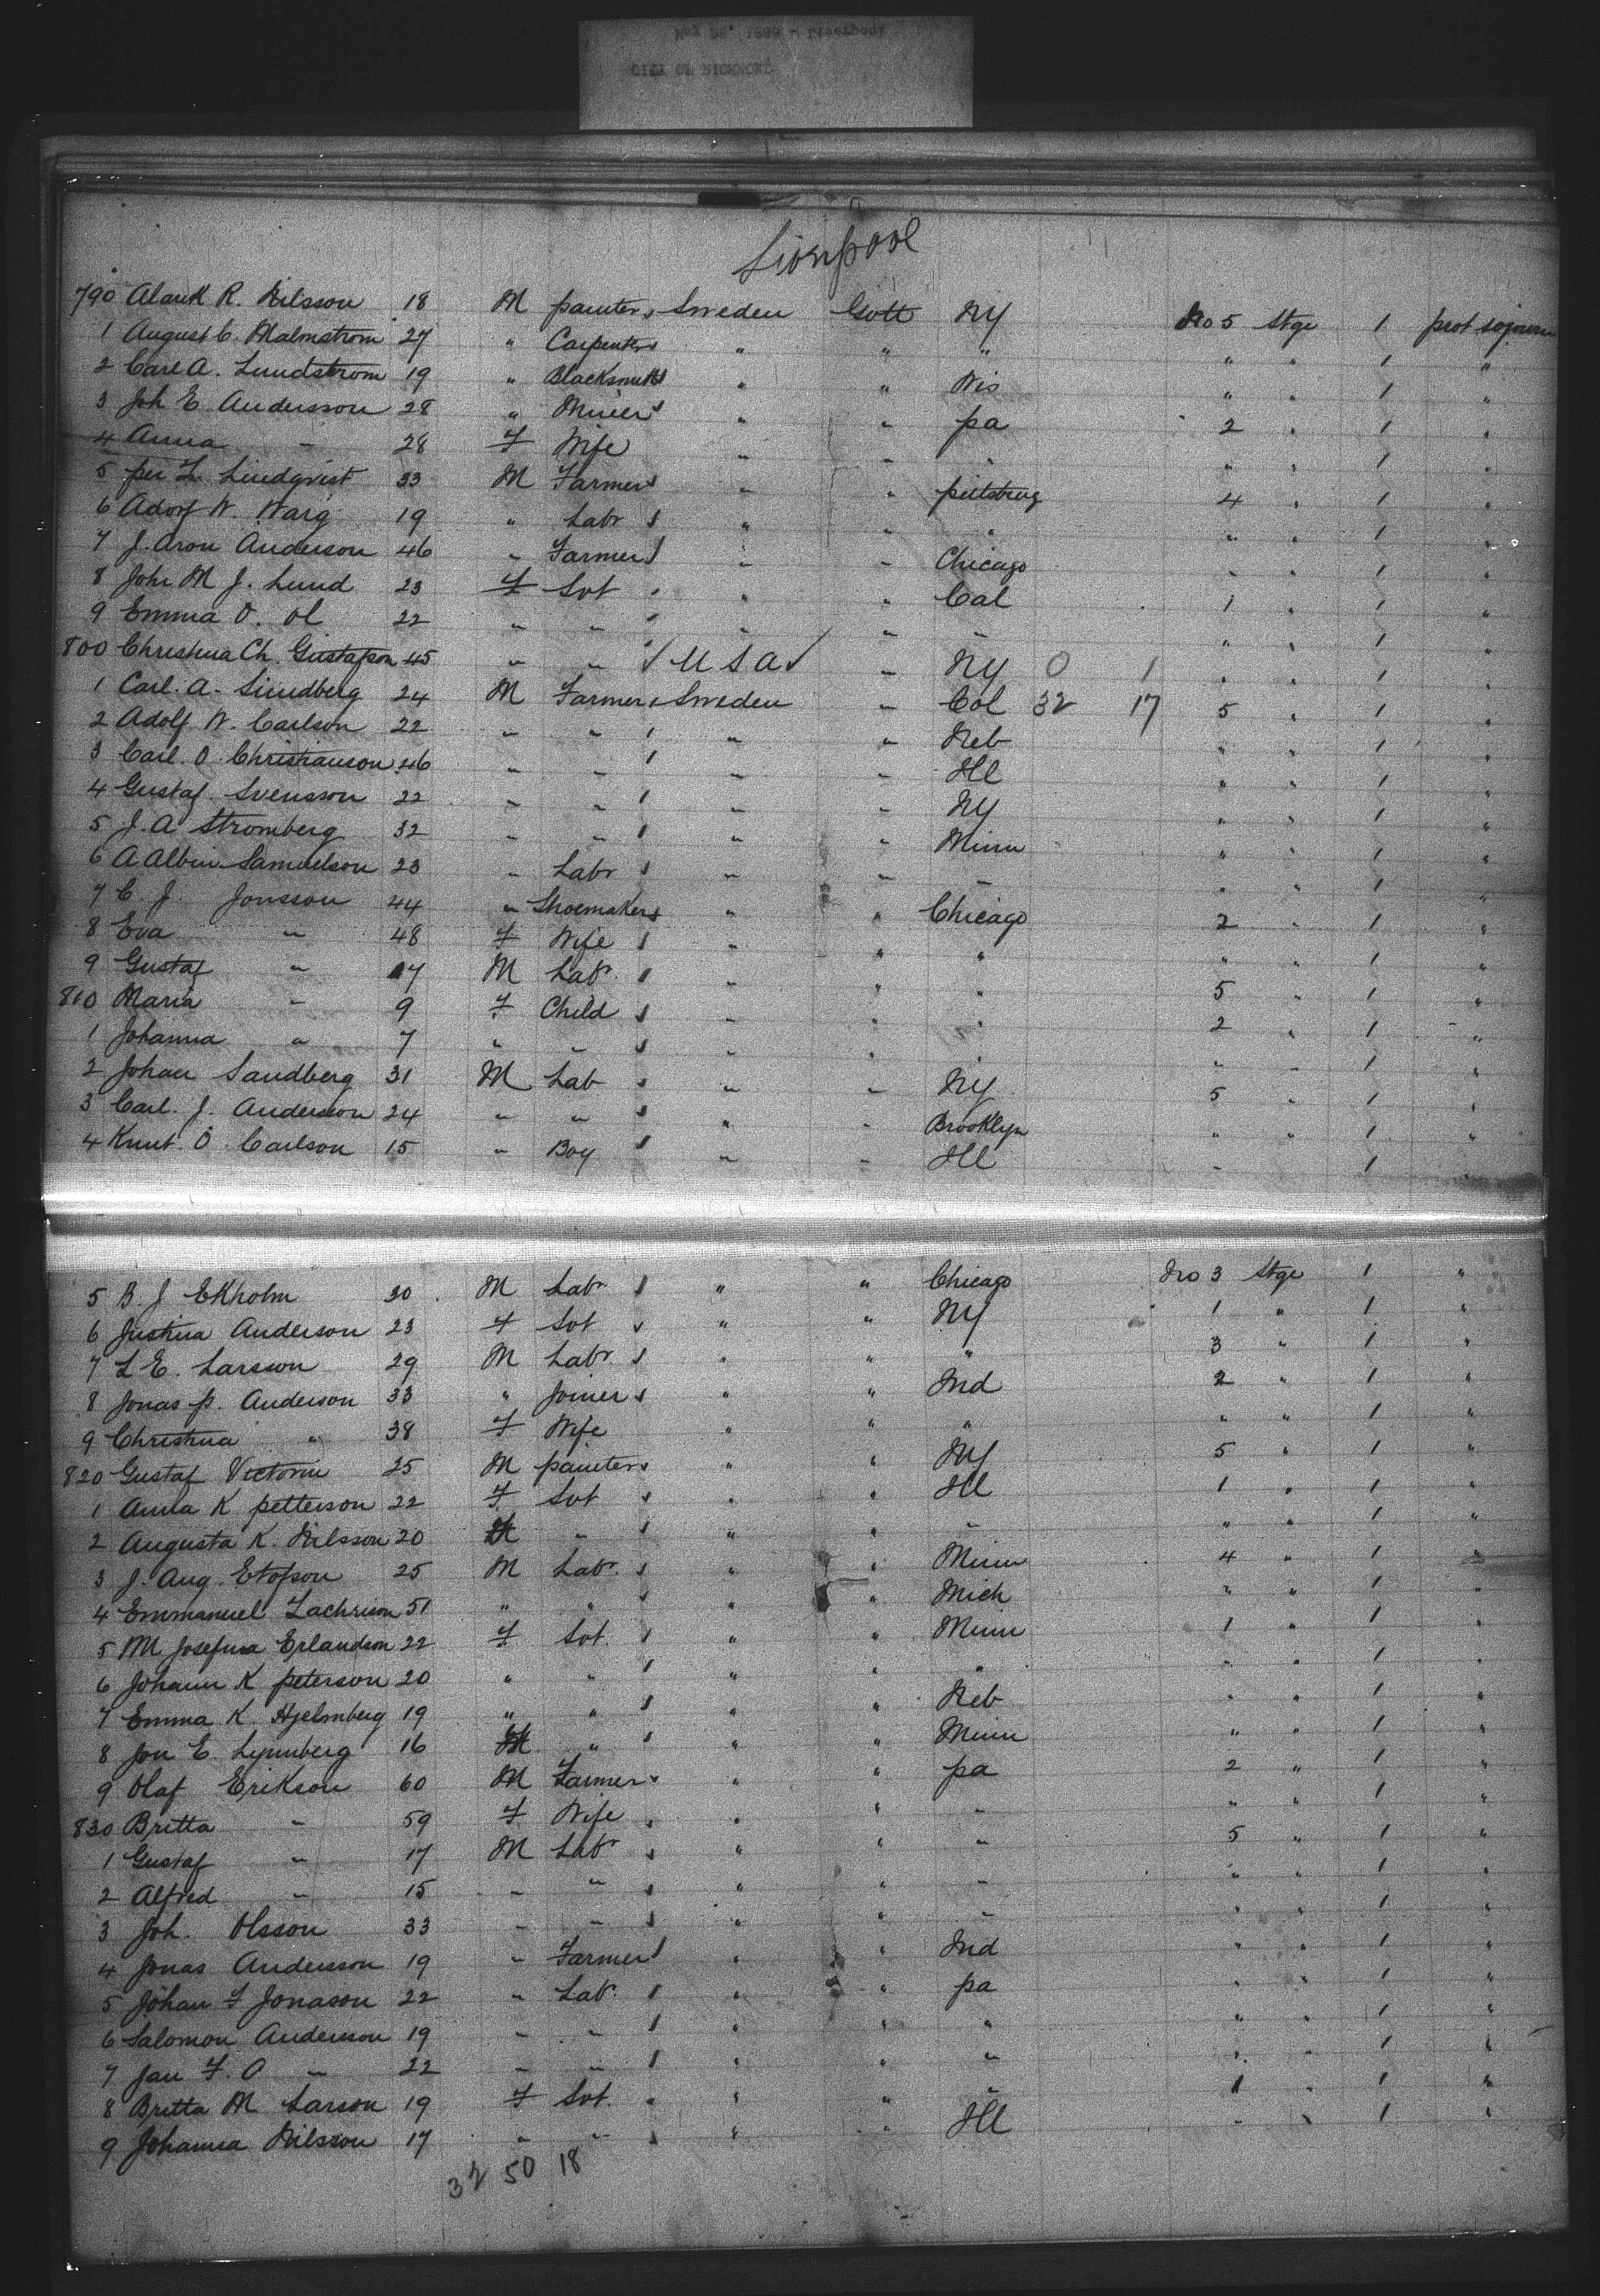 Liverpool
790 R. Nilsson 18 M painter Sweden Gott NY No 5 Stge 1 prot sojourn
1 August C. Malmstrom 27 " Carpenter " " " " " 1 "
2 Carl A. Lundstrom 19 " Blacksmith " " Wis " " 1 "
3 Joh E. Andersson 28 " Miner " " pa 2 " 1 "
4 Anna " 28 F Wife " " " " " 1 "
5 per L. Lindqvist 33 M Farmer " " pittsburg 4 " 1 "
6 Adolf W. Warg 19 " Labr " " " " " 1 "
7 J. Aron Anderson 46 " Farmer " " Chicago " " 1 "
8 M J. Lund 23 F Svt " " Cal 1 " 1 "
9 Emma O. Ol 22 " " " " " " " 1 "
800 Christina Ch. Gustafson 45 " " U S A " NY 0 1 " " 1 "
1 Carl. A. Sundberg 24 M Farmer Sweden " Col 32 17 5 " 1 "
2 Adolf W. Carlson 22 " " " " Neb " " 1 "
3 Carl. O. Christianson 26 " " " " Ill " " 1 "
4 Gustaf Svensson 22 " " " " NY " " 1 "
5 J. A Stromberg 32 " " " " Minn " " 1 "
6 A Albin Samuelson 23 " Labr " " " " " 1 "
7 C. J. Jonsson 44 " Shoemaker " " Chicago 2 " 1 "
8 Eva " 48 F Wife " " " " " 1 "
9 Gustaf " 17 M Labr " " " 5 " 1 "
810 Maria " 9 F Child " " " 2 " 1 "
1 Johanna " 7 " " " " " " " 1 "
2 Johan Sandberg 31 M Lab " " NY 5 " 1 "
3 Carl. J. Anderson 24 " " " " Brooklyn " " 1 "
4 Knut. O. Carlson 15 " Boy " " Ill " 1 "
5 B. J Ekholm 30 M Labr " " Chicago No 3 Stge 1 "
6 Justina Anderson 23 F Svt " " NY 1 " 1 "
7 L E. Larsson 29 M Labr. " " " 3 " 1 "
8 Jonas p. Anderson 33 " Joiner " " Ind 2 " 1 "
9 Christina " 38 F Wife " " " " " 1 "
820 Gustaf Victorin 25 M painter " " NY 5 " 1 "
1 Anna K petterson 22 F Svt " " Ill 1 " 1 "
2 Augusta K. Nilsson 20 " " " " " " 1 "
3 J. Aug. 25 M Labr. " " Minn 4 " 1 "
4 Emmanuel Zachrison 51 " " " " Mich " " 1 "
5 M Josefina Erlandson 22 F Svt. " " Minn 1 " 1 "
6 Johann K peterson 20 " " " " " " " 1 "
7 Emma K. Hjelmberg 19 " " " " Neb " " 1 "
8 Jon E. 16 " " " Minn " " 1 "
9 Olaf Erikson 60 M Farmer " " pa 2 " 1 "
830 Britta " 59 F Wife " " " " " 1 "
1 Gustaf " 17 M Labr " " " 5 " 1 "
2 Alfred " 15 " " " " " " " 1 "
3 Joh. Olsson 33 " " " " " " " 1 "
4 Jonas Andersson 19 " Farmer " " Ind " " 1 "
5 Johan F Jonason 22 " Lab. " " pa " " 1 "
6 Salomon Anderson 19 " " " " " " " 1 "
7 Jan F. O " 22 " " " " " " " 1 "
8 Britta M Larson 19 F Svt. " " " 1 " 1 "
9 Johanna Nilsson 17 " " " " Ill " " 1 "
32 50 18